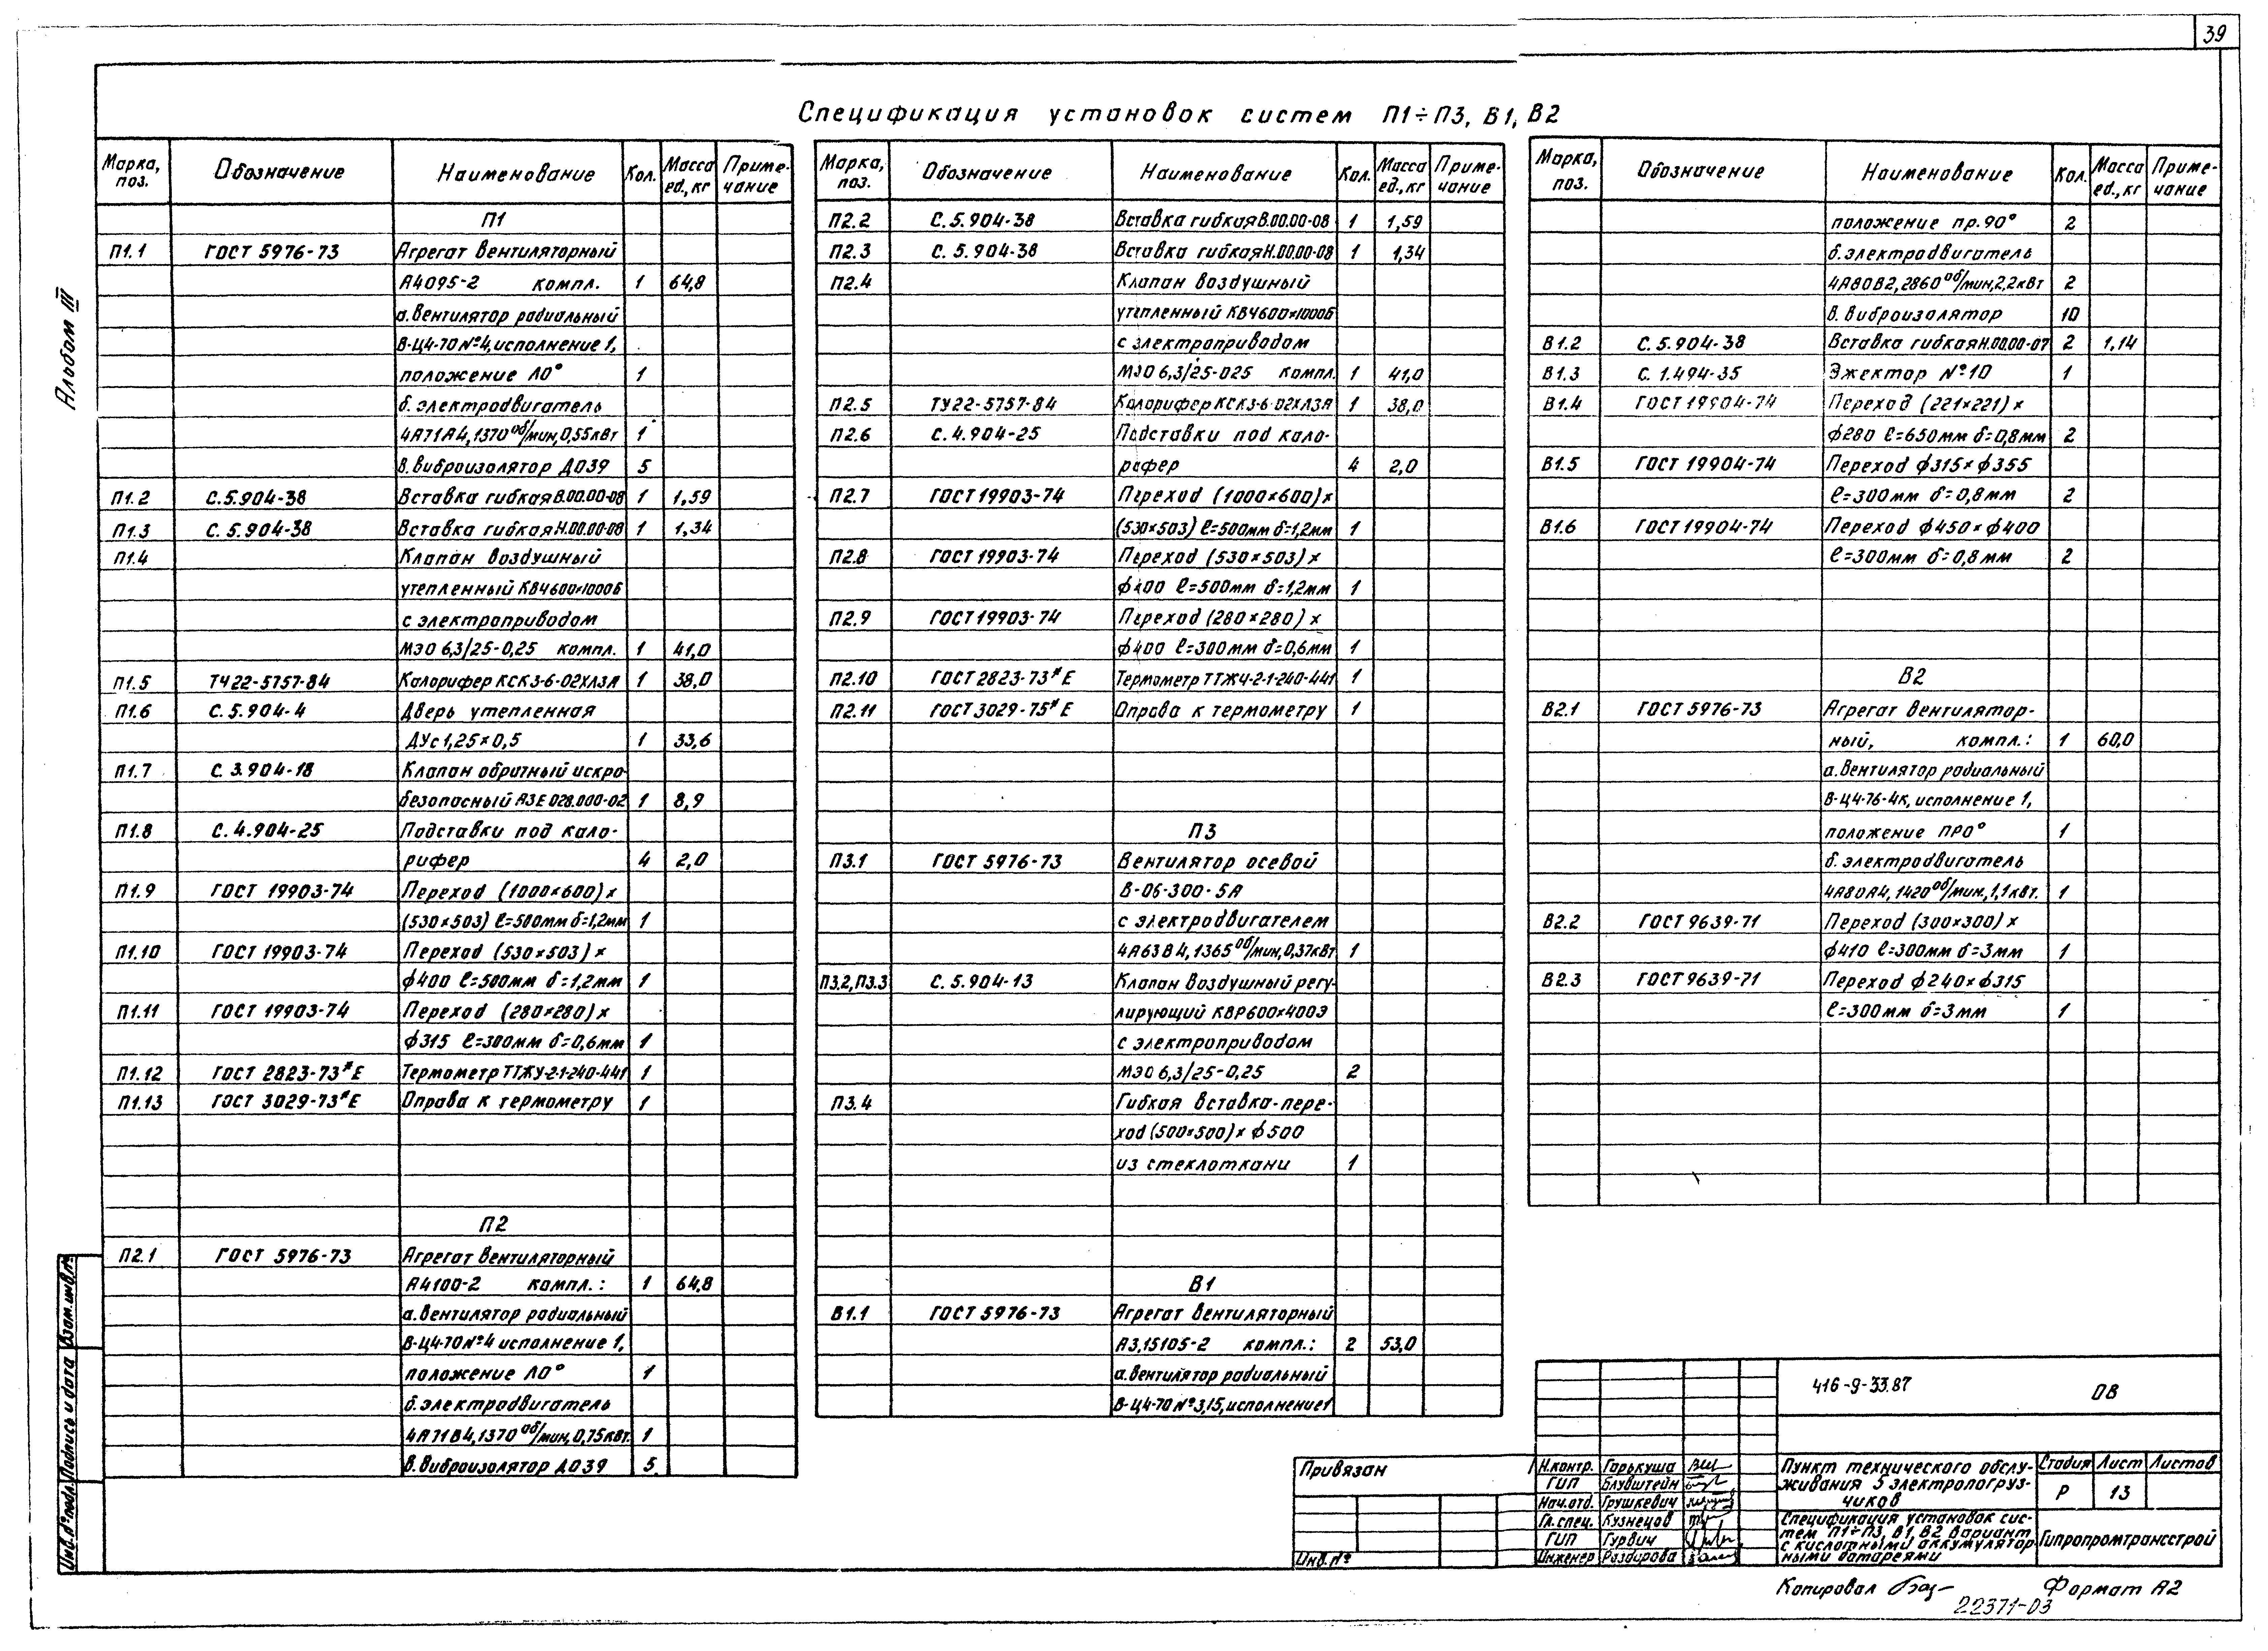 39
Альбом III
Спецификация установок систем П1÷П3, В1, В2
Марка, поз. Обозначение Наименование Кол. Масса ед., кг Примечание
П1
П1.1 ГОСТ 5976-73 Агрегат вентиляторный
А4095-2 компл. 1 64,8
а. Вентилятор радиальный
В-Ц4-70 №4, исполнение 1,
положение Л0° 1
б. электродвигатель
4А71А4, 1370 об/мин, 0,55кВт 1
в. Виброизолятор Д039 5
П1.2 С.5.904-38 Вставка гибкая В.00.00-08 1 1,59
П1.3 С.5.904-38 Вставка гибкая Н.00.00-08 1 1,34
П1.4 Клапан воздушный
утепленный КВЧ600×1000Б
с электроприводом
МЭО 6,3/25-0,25 компл. 1 41,0
П1.5 ТУ22-5757-84 Калорифер КСК3-6-02ХЛ3А 1 38,0
П1.6 С.5.904-4 Дверь утепленная
ДУс 1,25×0,5 1 33,6
П1.7 С.3.904-18 Клапан обратный искро-
безопасный АЗЕ 028.000-02 1 8,9
П1.8 С.4.904-25 Подставки под кало-
рифер 4 2,0
П1.9 ГОСТ 19903-74 Переход (1000×600)×
(530×503) ℓ=500мм δ=1,2мм 1
П1.10 ГОСТ 19903-74 Переход (530×503)×
ф400 ℓ=500мм δ=1,2мм 1
П1.11 ГОСТ 19903-74 Переход (280×280)×
ф315 ℓ=300мм δ=0,6мм 1
П1.12 ГОСТ 2823-73*Е Термометр ТТЖУ-2-1-240-441 1
П1.13 ГОСТ 3029-73*Е Оправа к термометру 1
П2
П2.1 ГОСТ 5976-73 Агрегат вентиляторный
А4100-2 компл.: 1 64,8
а. Вентилятор радиальный
В-Ц4-70 №4 исполнение 1,
положение Л0° 1
б. электродвигатель
4А71В4, 1370 об/мин, 0,75кВт. 1
в. Виброизолятор Д039 5
Марка, поз. Обозначение Наименование Кол. Масса ед., кг Примечание
П2.2 С.5.904-38 Вставка гибкая В.00.00-08 1 1,59
П2.3 С.5.904-38 Вставка гибкая Н.00.00-08 1 1,34
П2.4 Клапан воздушный
утепленный КВЧ600×1000Б
с электроприводом
МЭО 6,3/25-025 компл. 1 41,0
П2.5 ТУ22-5757-84 Калорифер КСК3-6-02ХЛ3А 1 38,0
П2.6 С.4.904-25 Подставки под кало-
рифер 4 2,0
П2.7 ГОСТ 19903-74 Переход (1000×600)×
(530×503) ℓ=500мм δ=1,2мм 1
П2.8 ГОСТ 19903-74 Переход (530×503)×
ф400 ℓ=500мм δ=1,2мм 1
П2.9 ГОСТ 19903-74 Переход (280×280)×
ф400 ℓ=300мм δ=0,6мм 1
П2.10 ГОСТ 2823-73*Е Термометр ТТЖУ-2-1-240-441 1
П2.11 ГОСТ 3029-75*Е Оправа к термометру 1
П3
П3.1 ГОСТ 5976-73 Вентилятор осевой
В-06-300-5А
с электродвигателем
4А63В4, 1365 об/мин, 0,37кВт 1
П3.2, П3.3 С.5.904-13 Клапан воздушный регу-
лирующий КВР600×400Э
с электроприводом
МЭО 6,3/25-0,25 2
П3.4 Гибкая вставка-пере-
ход (500×500)× ф500
из стеклоткани 1
В1
В1.1 ГОСТ 5976-73 Агрегат вентиляторный
А3,15105-2 компл.: 2 53,0
а. Вентилятор радиальный
В-Ц4-70 №3,15, исполнение1
Марка, поз. Обозначение Наименование Кол. Масса ед., кг Примечание
положение пр. 90° 2
б. электродвигатель
4А80В2, 2860 об/мин, 2,2кВт 2
в. виброизолятор 10
В1.2 С.5.904-38 Вставка гибкая Н.00.00-07 2 1,14
В1.3 С.1.494-35 Эжектор №10 1
В1.4 ГОСТ 19904-74 Переход (221×221)×
ф280 ℓ=650мм δ=0,8мм 2
В1.5 ГОСТ 19904-74 Переход ф315×ф355
ℓ=300мм δ=0,8мм 2
В1.6 ГОСТ 19904-74 Переход ф450×ф400
ℓ=300мм δ=0,8мм 2
В2
В2.1 ГОСТ 5976-73 Агрегат вентилятор-
ный, компл.: 1 60,0
а. Вентилятор радиальный
В-Ц4-76-4К, исполнение 1,
положение ПР0° 1
б. электродвигатель
4А80А4, 1420 об/мин, 1,1кВт. 1
В2.2 ГОСТ 9639-71 Переход (300×300)×
ф410 ℓ=300мм δ=3мм 1
В2.3 ГОСТ 9639-71 Переход ф240×ф315
ℓ=300мм δ=3мм 1
Инв.№подл. Подпись и дата Взам.инв.№
Привязан
Инв.№
Н.контр. Горькуша
ГИП Блувштейн
Нач.отд. Грушкевич
Гл.спец. Кузнецов
ГИП Гурвич
Инженер Раздирова
416-9-33.87 ОВ
Пункт технического обслу-
живания 5 электропогруз-
чиков
Стадия Лист Листов
Р 13
Спецификация установок сис-
тем П1÷П3, В1, В2 Вариант
с кислотными аккумулятор-
ными батареями
Гипропромтрансстрой
Копировал Формат А2
22371-03